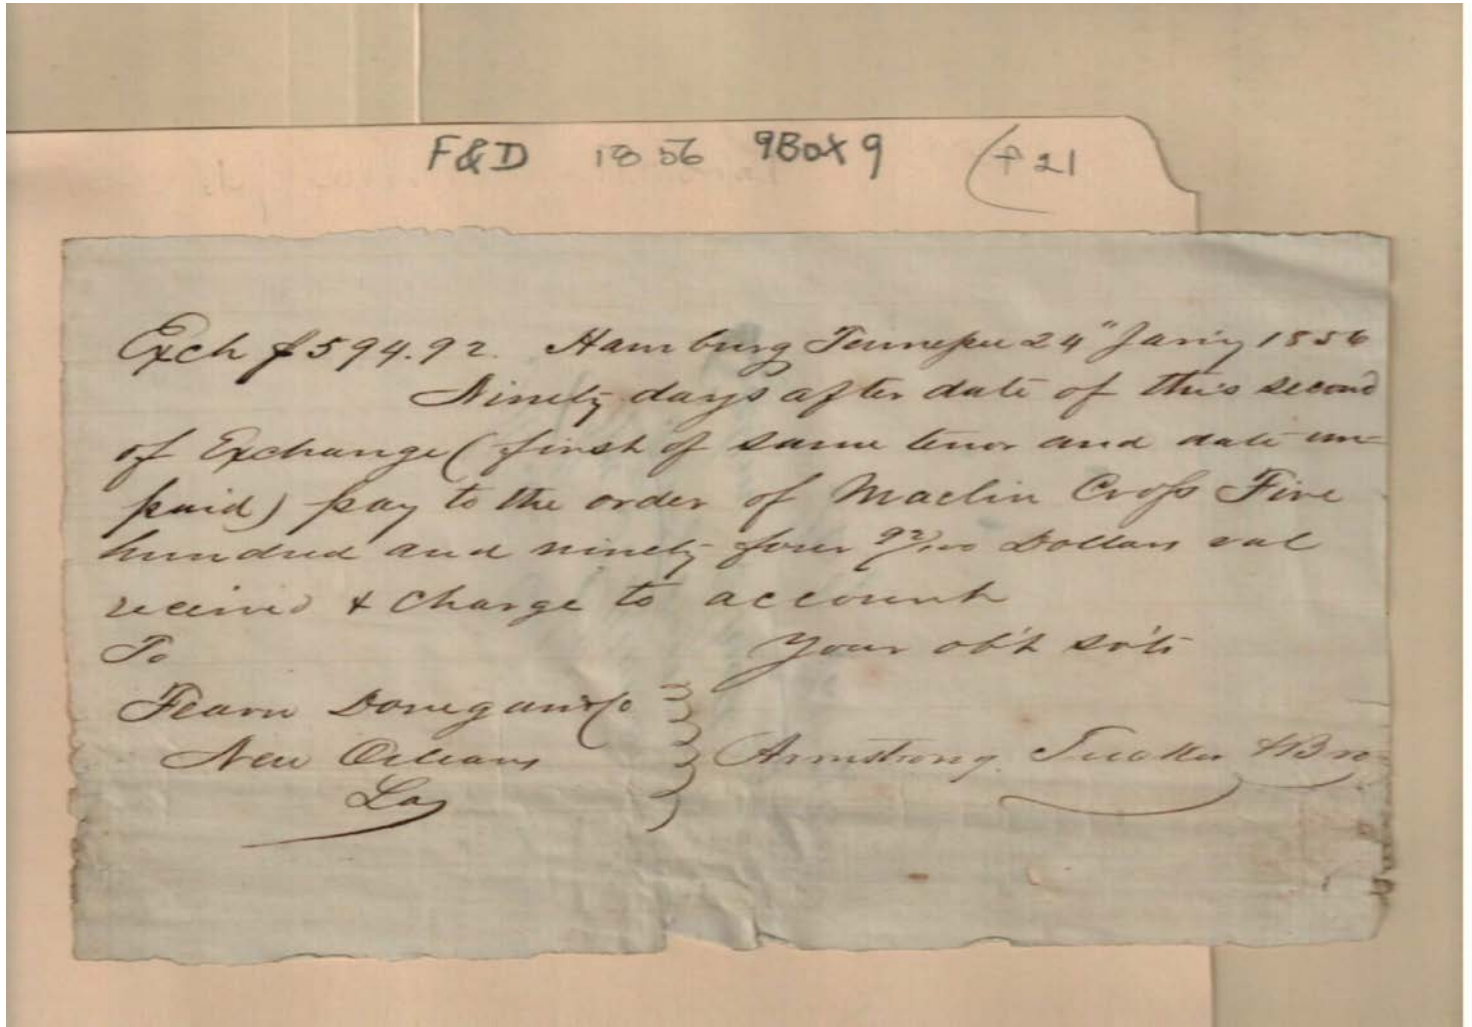 F&D 1856 9Box9 f 21
Exch $594.92. Hamburg Tennessee 24" Jan'y 1856
Ninety days after date of this second
of Exchange (first of same tenor and date un=
paid) pay to the order of Maclin Cross Five
hundred and ninety four 92/100 Dollars val
received & charge to account
To Your ob't sv'ts
Fearn Donegan & Co
New Orleans Armstrong Tucker & Bro
La